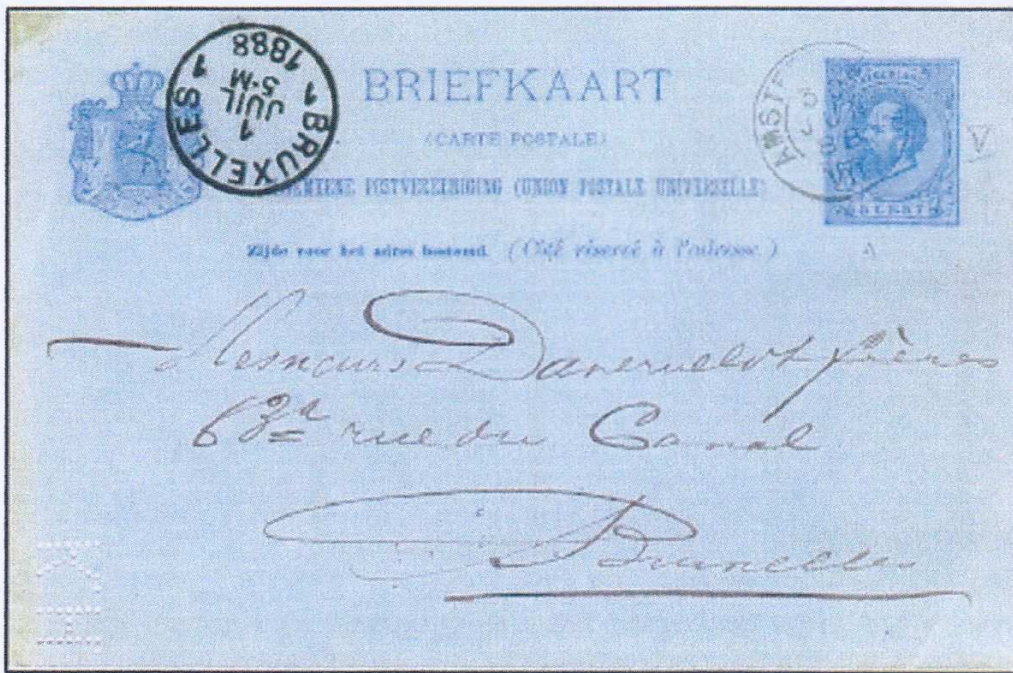 BRUXELLES
1 1
1
JUIL
5-M
1888
BRIEFKAART
(CARTE POSTALE)
ALGEMEENE POSTVEREENIGING (UNION POSTALE UNIVERSELLE)
Zijde voor het adres bestemd. (Côté réservé à l'adresse.)
AMST
V
Messieurs frères
63A rue du Canal
Bruxelles